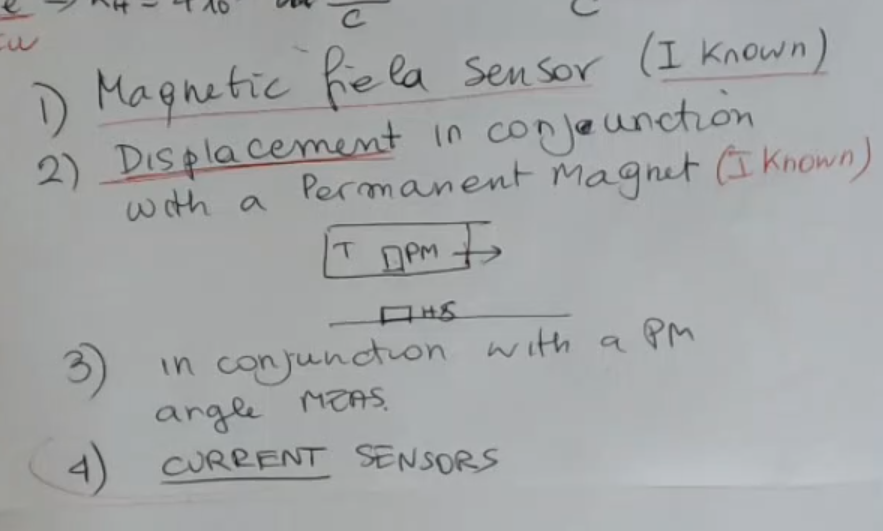 C
1) Magnetic fiela sensor (I known)
2) Displacement in conjeunction
with a Permanent Magnet (I known)
T PM
HS
3) in conjunction with a PM
angle MEAS.
4) CURRENT SENSORS